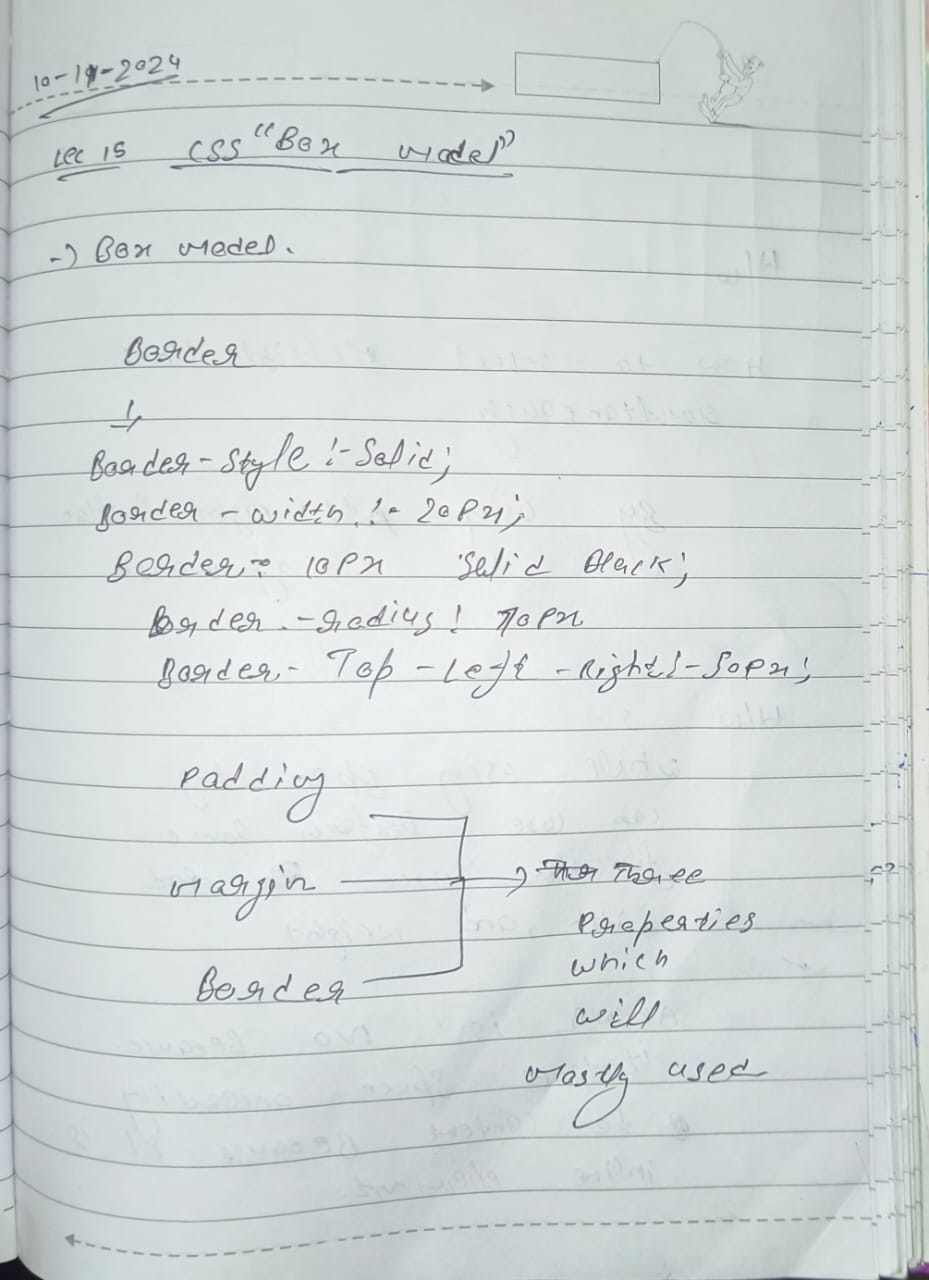 10-11-2024
Lec 15 CSS "Box Model"
-> Box Model.
Border
Border-Style :- Solid;
Border - width :- 20px;
Border: 10px Solid Black;
Border - radius : 70px
Border - Top - Left - Right :- 50px;
Padding
Margin -> Three
Properties
which
Border
will
Mostly used